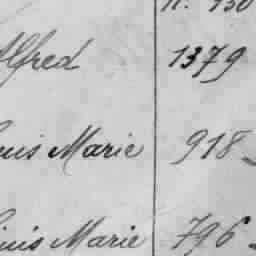 n. 130
Alfred 1379
ouis Marie 918
ouis Marie 796